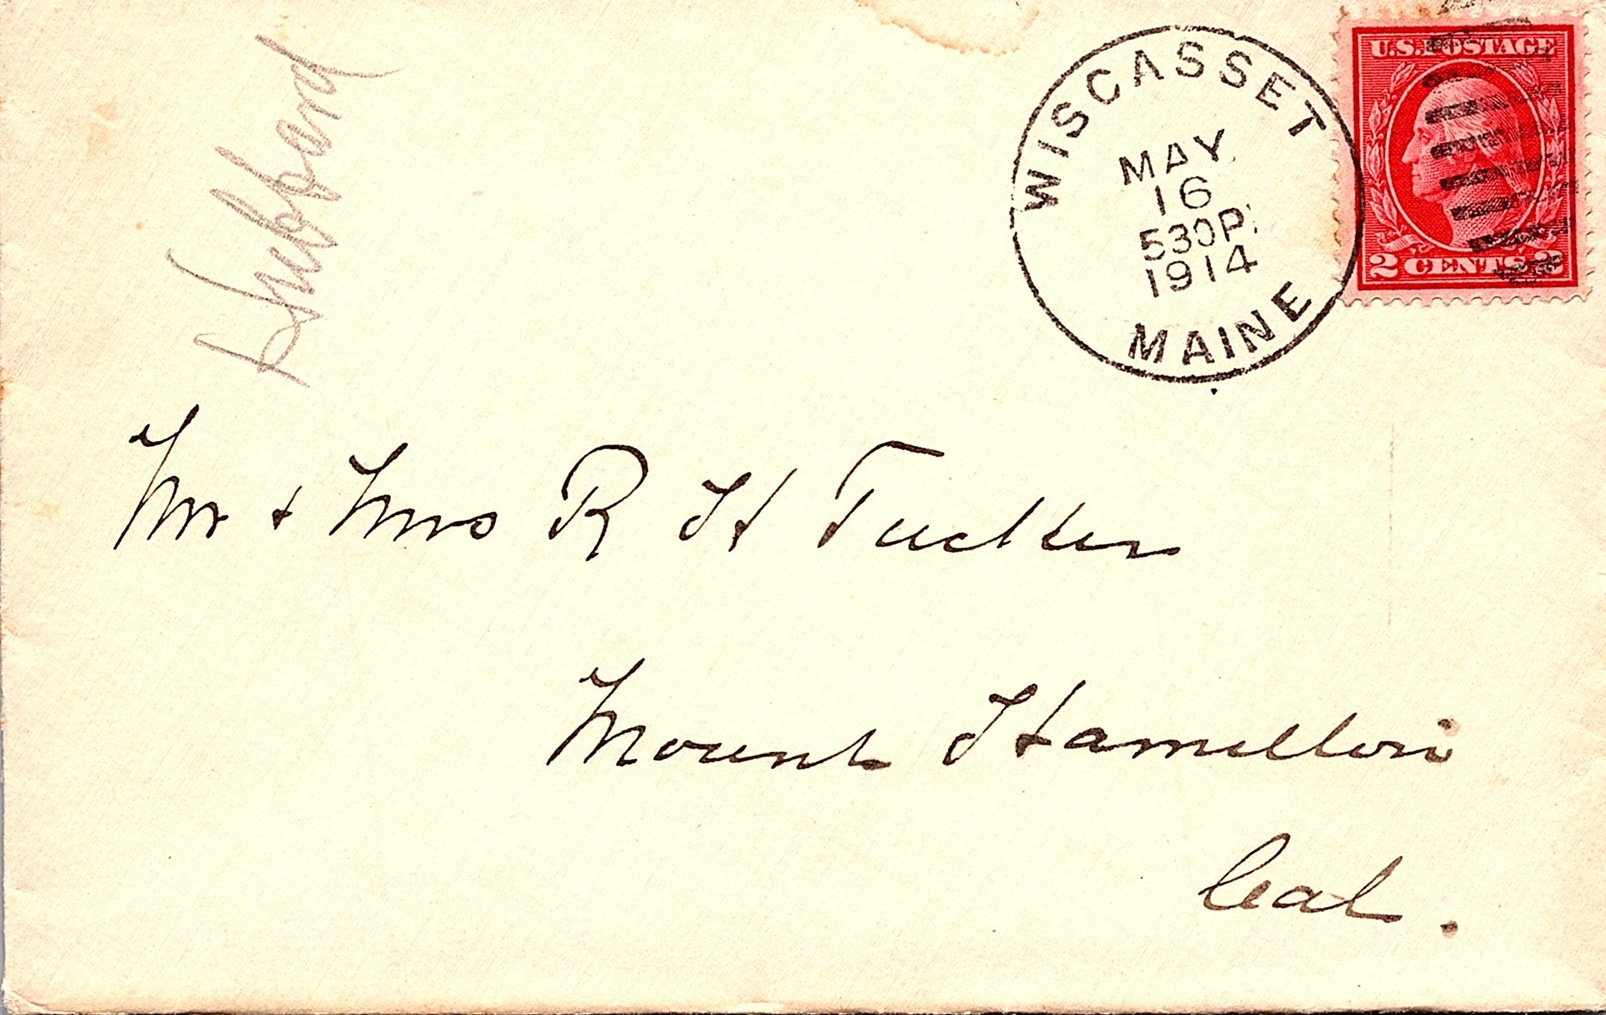 Hubbard
WISCASSET
MAY
16
530P
1914
MAINE
U.S. POSTAGE
2 CENTS 2
Mr + Mrs R H Tucker
Mount Hamilton
Cal.